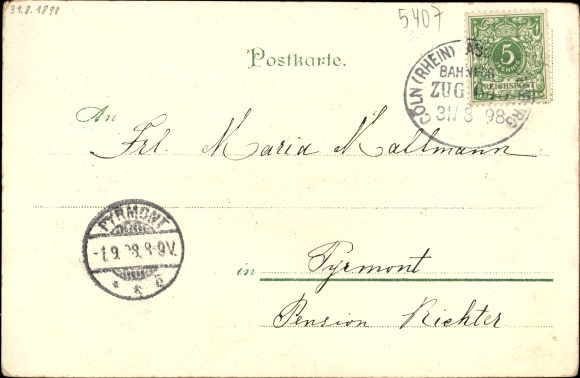 31.8.1898
5407
Postkarte.
5
REICHSPOST
CÖLN (RHEIN)
BAHNPOST
ZUG
31/8 98
An
Frl. Maria Mallmann
PYRMONT
-1.9.98.8-9V.
* * c
in Pyrmont
Pension Richter